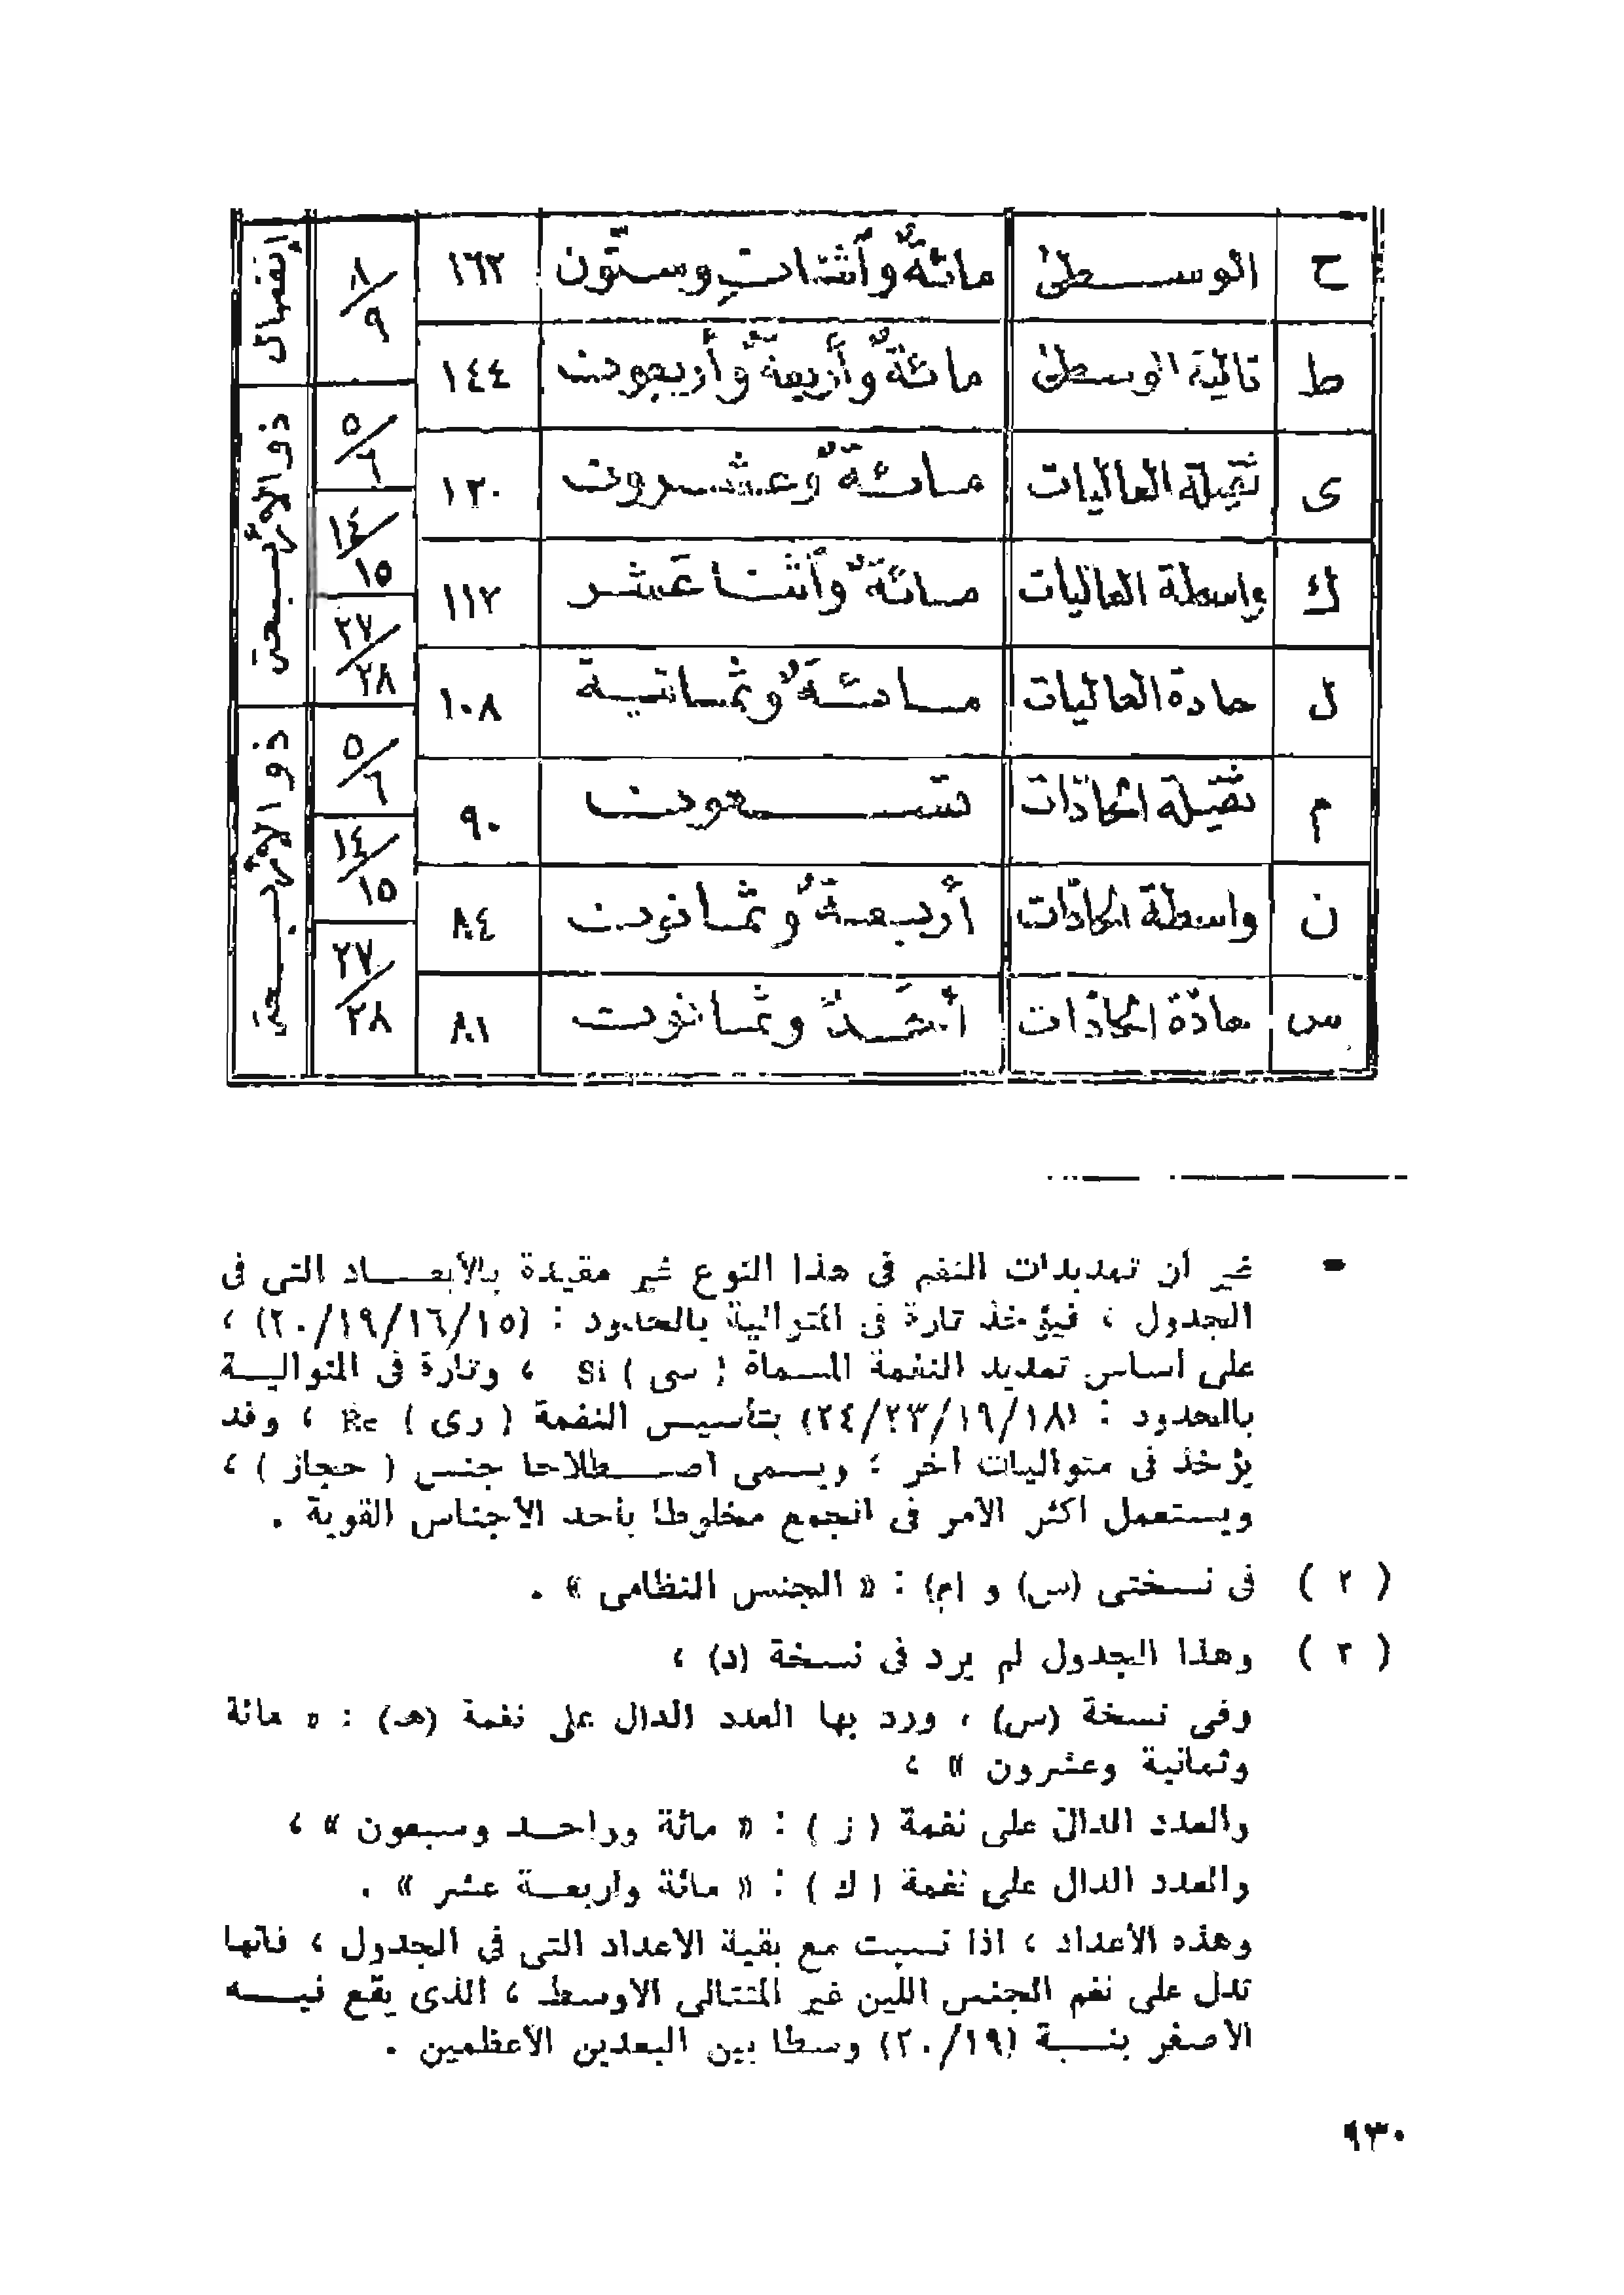 ح الوسطى مائةٌ وأثنان وستّون ١٦٢ ٨/٩ إنفصال
ط تالية الوسطى مائةٌ وأربعةٌ وأربعون ١٤٤
ى ثقيلة العاليات مائةٌ وعشرون ١٢٠ ٥/٦ ذو الأربعة
ك واسطة العاليات مائةٌ وأثنا عشر ١١٢ ١٤/١٥
ل حادة العاليات مائةٌ وثمانية ١٠٨ ٢٧/٢٨
م ثقيلة الحادّات تسعون ٩٠ ٥/٦ ذو الأربعة
ن واسطة الحادّات أربعةٌ وثمانون ٨٤ ١٤/١٥
س حادّة الحادّات وثمانون ٨١ ٢٧/٢٨
- غير أن تمديدات النغم فى هذا النوع غير مقيدة بالأبعاد التى فى
الجدول ، فيؤخذ تارة فى المتوالية بالحدود : (٢٠/١٩/١٦/١٥) ،
على أساس تمديد النغمة المسماة ( سى ) Si ، وتارة فى المتوالية
بالحدود : (٢٤/٢٣/١٩/١٨) بتأسيس النغمة ( رى ) Re ، وقد
يؤخذ فى متواليات أخر ؛ ويسمى اصطلاحا جنس ( حجاز ) ،
ويستعمل أكثر الأمر فى الجمع مخلوطا بأحد الأجناس القوية .
( ٢ ) فى نسختى (س) و (م) : « الجنس النظامى » .
( ٣ ) وهذا الجدول لم يرد فى نسخة (د) ،
وفى نسخة (س) ، ورد بها العدد الدال على نغمة (هـ) : « مائة
وثمانية وعشرون » ،
والعدد الدال على نغمة ( ز ) : « مائة وواحد وسبعون » ،
والعدد الدال على نغمة ( ك ) : « مائة وأربعة عشر » .
وهذه الأعداد ، اذا نسبت مع بقية الاعداد التى فى الجدول ، فانها
تدل على نغم الجنس اللين غير المتتالى الاوسط ، الذى يقع فيه
الأصغر بنسبة (٢٠/١٩) وسطا بين البعدين الأعظمين .
٩٣٠